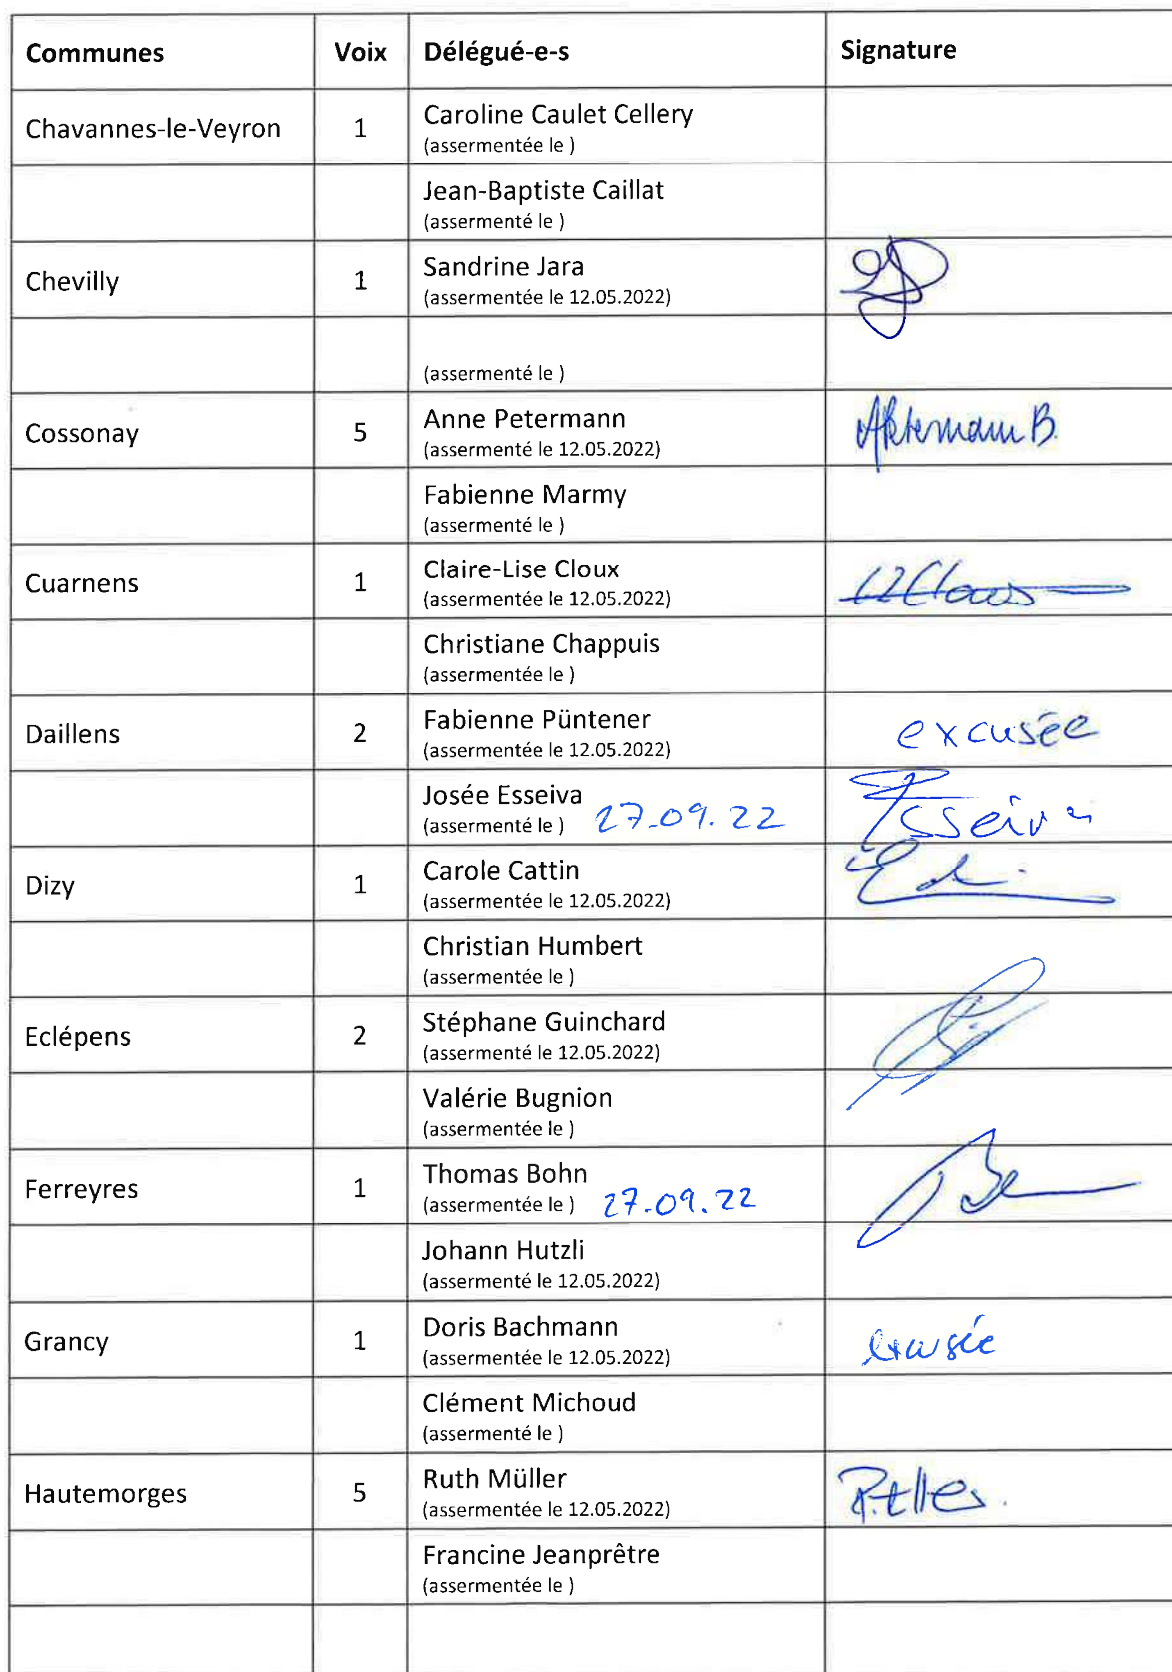 Communes Voix Délégué-e-s Signature
Chavannes-le-Veyron 1 Caroline Caulet Cellery
(assermentée le )
Jean-Baptiste Caillat
(assermenté le )
Chevilly 1 Sandrine Jara
(assermentée le 12.05.2022)
(assermenté le )
Cossonay 5 Anne Petermann
(assermenté le 12.05.2022)
Fabienne Marmy
(assermenté le )
Cuarnens 1 Claire-Lise Cloux
(assermentée le 12.05.2022)
Christiane Chappuis
(assermentée le )
Daillens 2 Fabienne Püntener excusée
(assermentée le 12.05.2022)
Josée Esseiva Esseiva
(assermentée le ) 27.09.22
Dizy 1 Carole Cattin
(assermentée le 12.05.2022)
Christian Humbert
(assermentée le )
Eclépens 2 Stéphane Guinchard
(assermenté le 12.05.2022)
Valérie Bugnion
(assermentée le )
Ferreyres 1 Thomas Bohn
(assermentée le ) 27.09.22
Johann Hutzli
(assermenté le 12.05.2022)
Grancy 1 Doris Bachmann excusée
(assermentée le 12.05.2022)
Clément Michoud
(assermenté le )
Hautemorges 5 Ruth Müller
(assermentée le 12.05.2022)
Francine Jeanprêtre
(assermentée le )